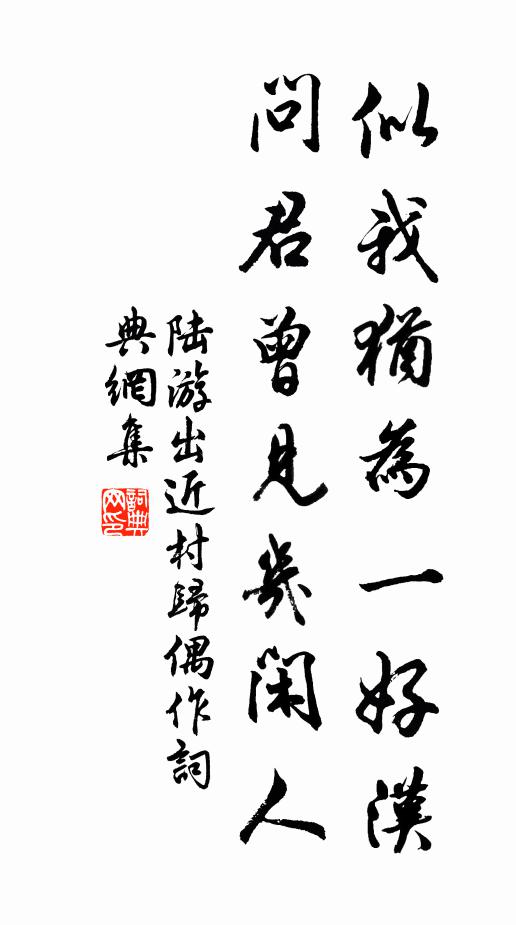 似我猶為一好漢
問君曾見幾閑人
陆游出近村歸偶作詞
典網集
詞典网印